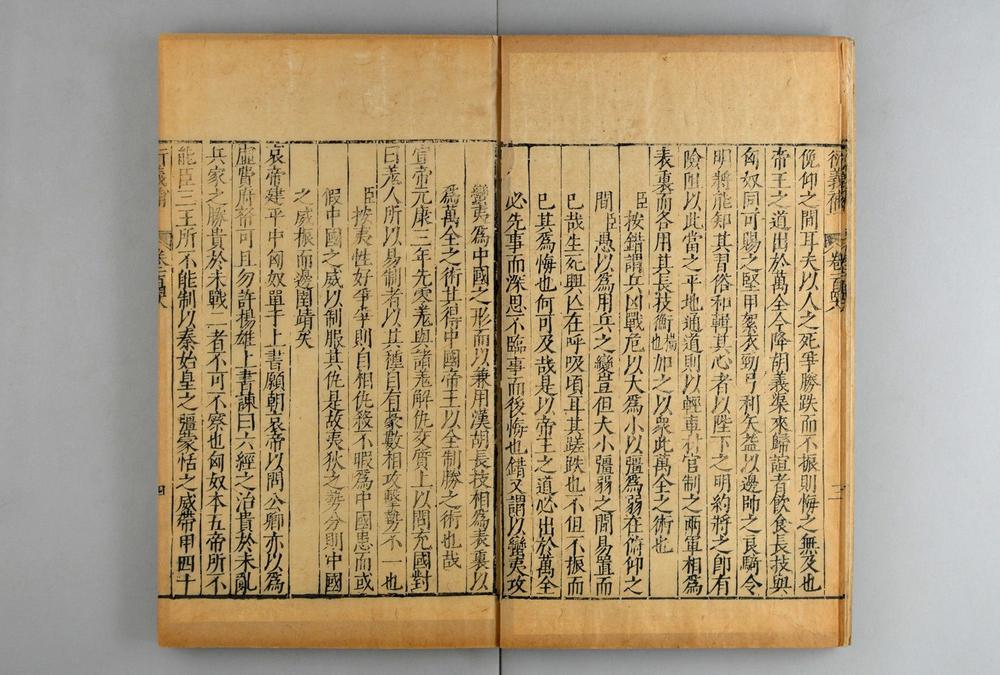 衍義補
俛仰之間耳夫以人之死爭勝跌而不振則悔之無及也
帝王之道出於萬全今降胡義渠來歸誼者飲食長技與
匈奴同可賜之堅甲絮衣勁弓利矢益以邊師之良騎令
明將能知其習俗和輯其心者以陛下之明約將之卽有
險阻以此當之平地通道則以輕車材官制之兩軍相爲
表裏而各用其長技衡橫也加之以衆此萬全之術也
臣按錯謂兵凶戰危以大爲小以彊爲弱在俯仰之
間臣愚以爲用兵之變豈但大小彊弱之間易置而
已哉生死興亾在呼吸頃耳其蹉跌也不但不振而
已其爲悔也何可及哉是以帝王之道必出於萬全
必先事而深思不臨事而後悔也錯又謂以蠻夷攻
蠻夷爲中國之形而以兼用漢胡長技相爲表裏以
爲萬全之術其得中國帝王以全制勝之術也哉
宣帝元康三年先零羗與諸羗解仇交質上以問充國對
曰羗人所以易制者以其種自有豪數相攻擊勢不一也
臣按夷性好爭爭則自相仇殺不暇爲中國患而或
假中國之威以制服其仇是故夷狄之勢分則中國
之威振而邊圉靖矣
哀帝建平中匈奴單于上書願朝哀帝以問公卿亦以爲
虛費府帑可且勿許揚雄上書諫曰六經之治貴於未亂
兵家之勝貴於未戰二者不可不察也匈奴本五帝所不
能臣三王所不能制以秦始皇之彊蒙恬之威帶甲四十
衍義補 四